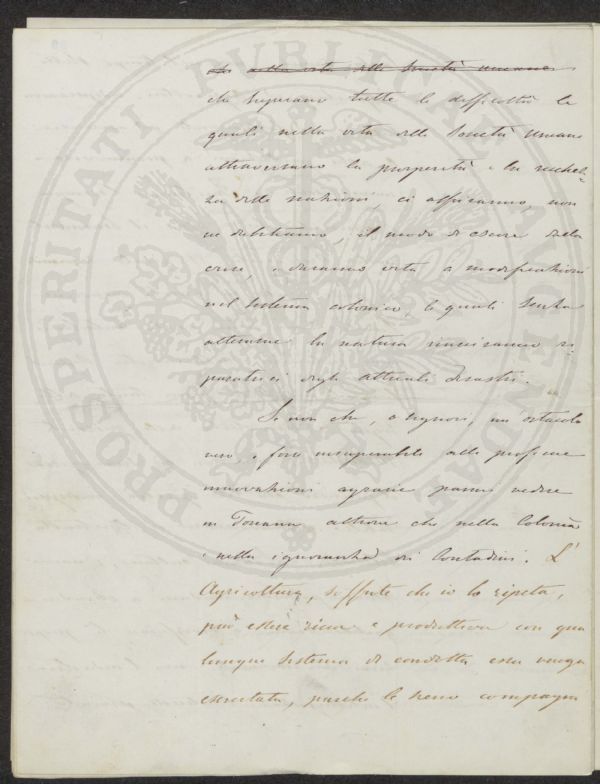 alla vita delle Società umane
che superano tutte le difficoltà le
quali nella vita delle Società umane
attraversano la prosperità e la ricchez-
za delle nazioni, ci offriranno, non
ne dubitiamo, il modo di escire dalla
crise, e daranno vita a modificazioni
nel sistema colonico, le quali senza
alterarne la natura riusciranno ri-
paratrici degli attuali disastri.
Se non che, o Signori, un ostacolo
vero, e forse insuperabile alle proficue
innovazioni agrarie parmi vedere
in Toscana altrove che nella Colonia
e nella ignoranza dei Contadini. L'
Agricoltura, soffrite che io lo ripeta,
può essere ricca e produttiva con qua
lunque sistema di condotta essa venga
esercitata, purché le sieno compagni
PROSPERITATI PUBLICAE AUGENDAE